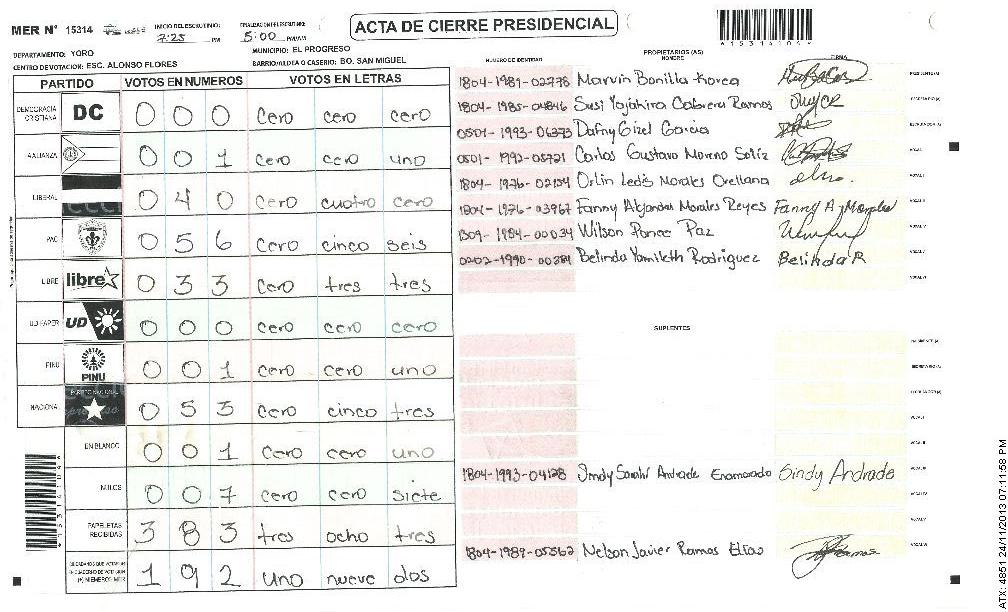 MER Nº 15314
INICIO DEL ESCRUTINIO: 7:25 PM
FINALIZACION DEL ESCRUTINIO: 5:00 PM/AM
ACTA DE CIERRE PRESIDENCIAL
*15314104*
DEPARTAMENTO: YORO
MUNICIPIO: EL PROGRESO
CENTRO DE VOTACION: ESC. ALONSO FLORES
BARRIO/ALDEA O CASERIO: BO. SAN MIGUEL
PARTIDO VOTOS EN NUMEROS VOTOS EN LETRAS
DEMOCRACIA CRISTIANA DC 0 0 0 cero cero cero
ALIANZA 0 0 1 cero cero uno
LIBERAL 0 4 0 cero cuatro cero
PAC 0 5 6 cero cinco seis
LIBRE libre 0 3 3 cero tres tres
UD FAPER UD 0 0 0 cero cero cero
PINU PINU 0 0 1 cero cero uno
NACIONAL PARTIDO NACIONAL 0 5 3 cero cinco tres
EN BLANCO 0 0 1 cero cero uno
NULOS 0 0 7 cero cero siete
PAPELETAS RECIBIDAS 3 8 3 tres ocho tres
CIUDADANOS QUE VOTARON (+) MIEMBROS MER 1 9 2 uno nueve dos
PROPIETARIOS (AS)
NUMERO DE IDENTIDAD NOMBRE FIRMA
1804-1989-02778 Marvin Bonilla Korea PRESIDENTE(A)
1804-1985-04846 Susi Yajahira Cabrera Ramos SECRETARIO (A)
0501-1993-06373 Dafny Gizel Garcia ESCRUTADOR (A)
0501-1992-05721 Carlos Gustavo Moreno Solíz VOCAL I
1804-1976-02154 Orlin Ledis Morales Orellana
1804-1976-03967 Fanny Aljandra Morales Reyes Fanny A Morales
1309-1984-00034 Wilson Ponce Paz
0202-1990-00384 Belinda Yamileth Rodriguez Belinda R
SUPLENTES
1804-1993-04128 Sindy Sarahi Andrade Enamorado Sindy Andrade
1804-1989-05562 Nelson Javier Ramos Elias
ATX: 4851 24/11/2013 07:11:58 PM